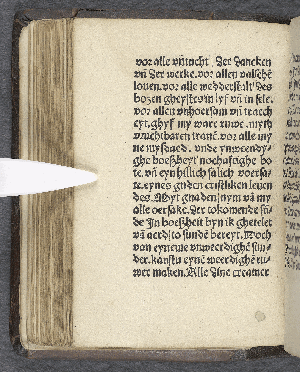 vor alle vñtucht. Der dancken
vñ der werke. vor allen valschē
louen. vor alle wedderstalt des
bozen gheystes in lyf vñ in sele.
vor allen vnhorsam vñ traech
eyt. ghyf my ware ruwe. mylde
vruchtbaren trane. vor alle my
ne myssaed. vnde vnwendy-
ghe boeßheyt nochaftighe bo
te. vñ eyn hillich salich voersa-
te. eynes guden cristliken leuen
des. Myt gnaden nym vā my
alle oersake. Der tokomende sū
de Jn boeßheit byn ik ghetelet
vñ aerdt to sunde bereyt. Noch
van eyneme vnwerdighē sun-
der. kanstu eynē weerdighē ru-
wer maken. Alle dine creatuer